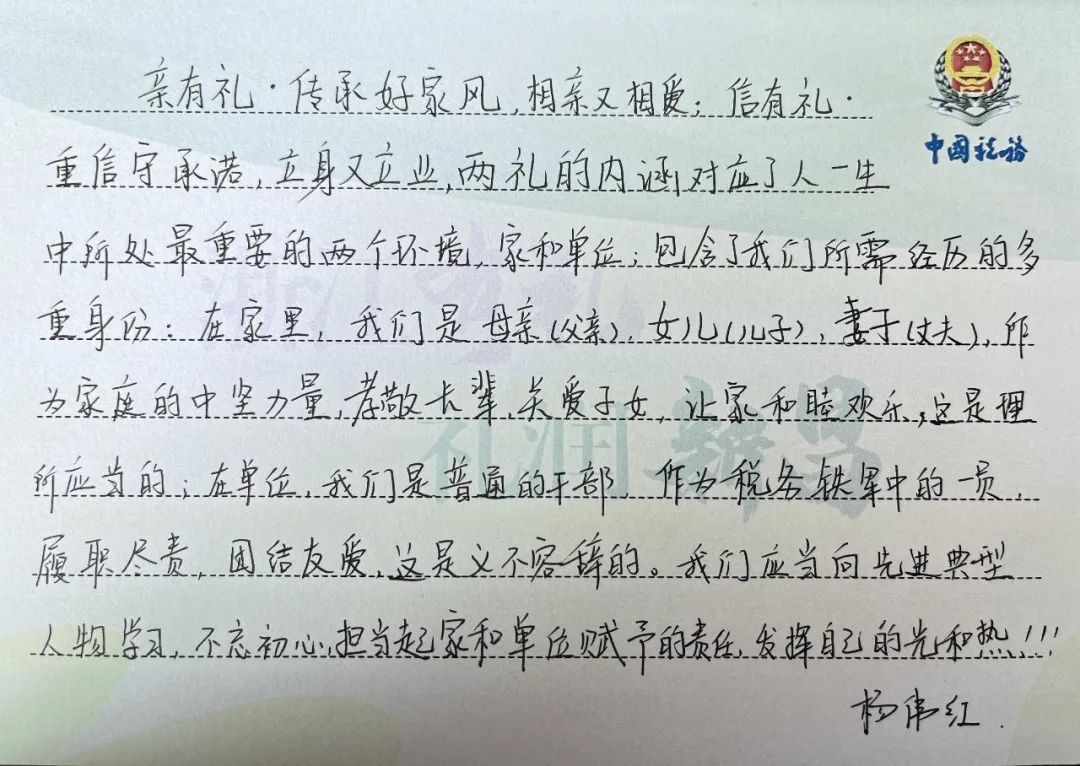 亲有礼·传承好家风，相亲又相爱；信有礼·
中国税务
重信守承诺，立身又立业，两礼的内涵对应了人一生
中所处最重要的两个环境，家和单位；包含了我们所需经历的多
重身份：在家里，我们是母亲（父亲），女儿（儿子），妻子（丈夫），作
为家庭的中坚力量，孝敬长辈，关爱子女，让家和睦欢乐，这是理
所应当的；在单位，我们是普通的干部，作为税务铁军中的一员，
履职尽责，团结友爱，这是义不容辞的。我们应当向先进典型
人物学习，不忘初心，担当起家和单位赋予的责任，发挥自己的光和热！！！
杨伟红